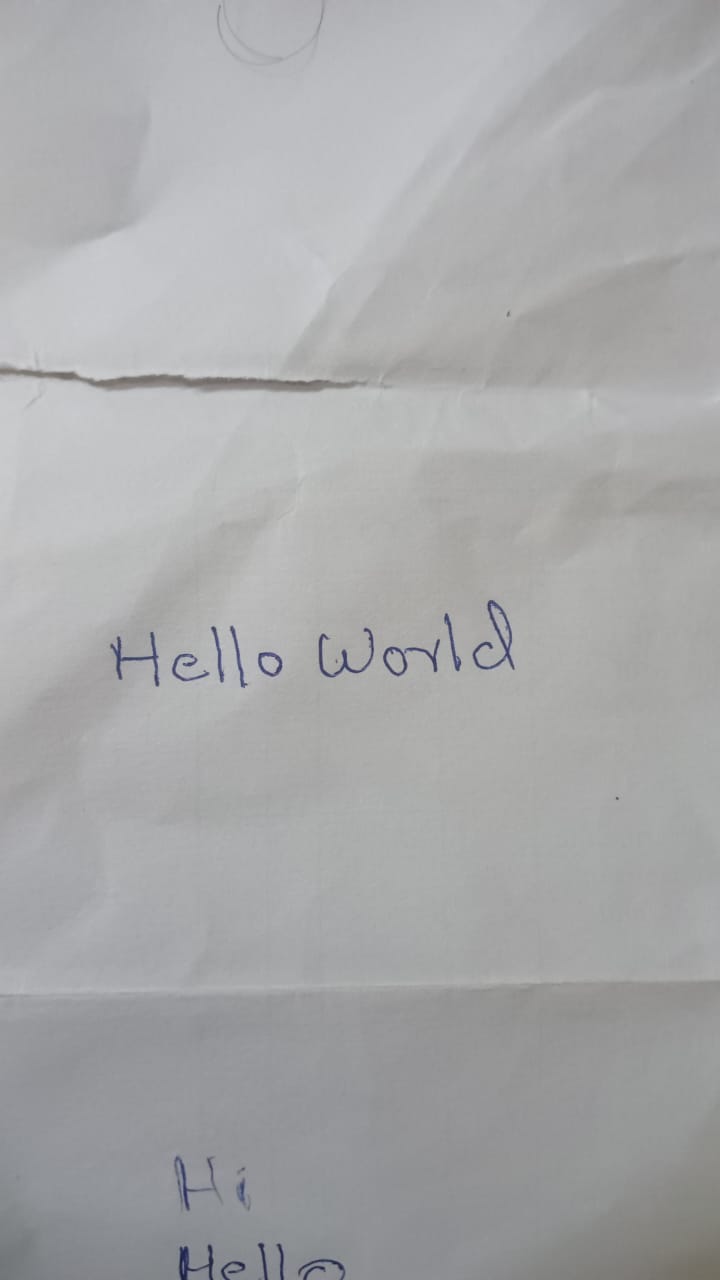 Hello World
Hi
Hello